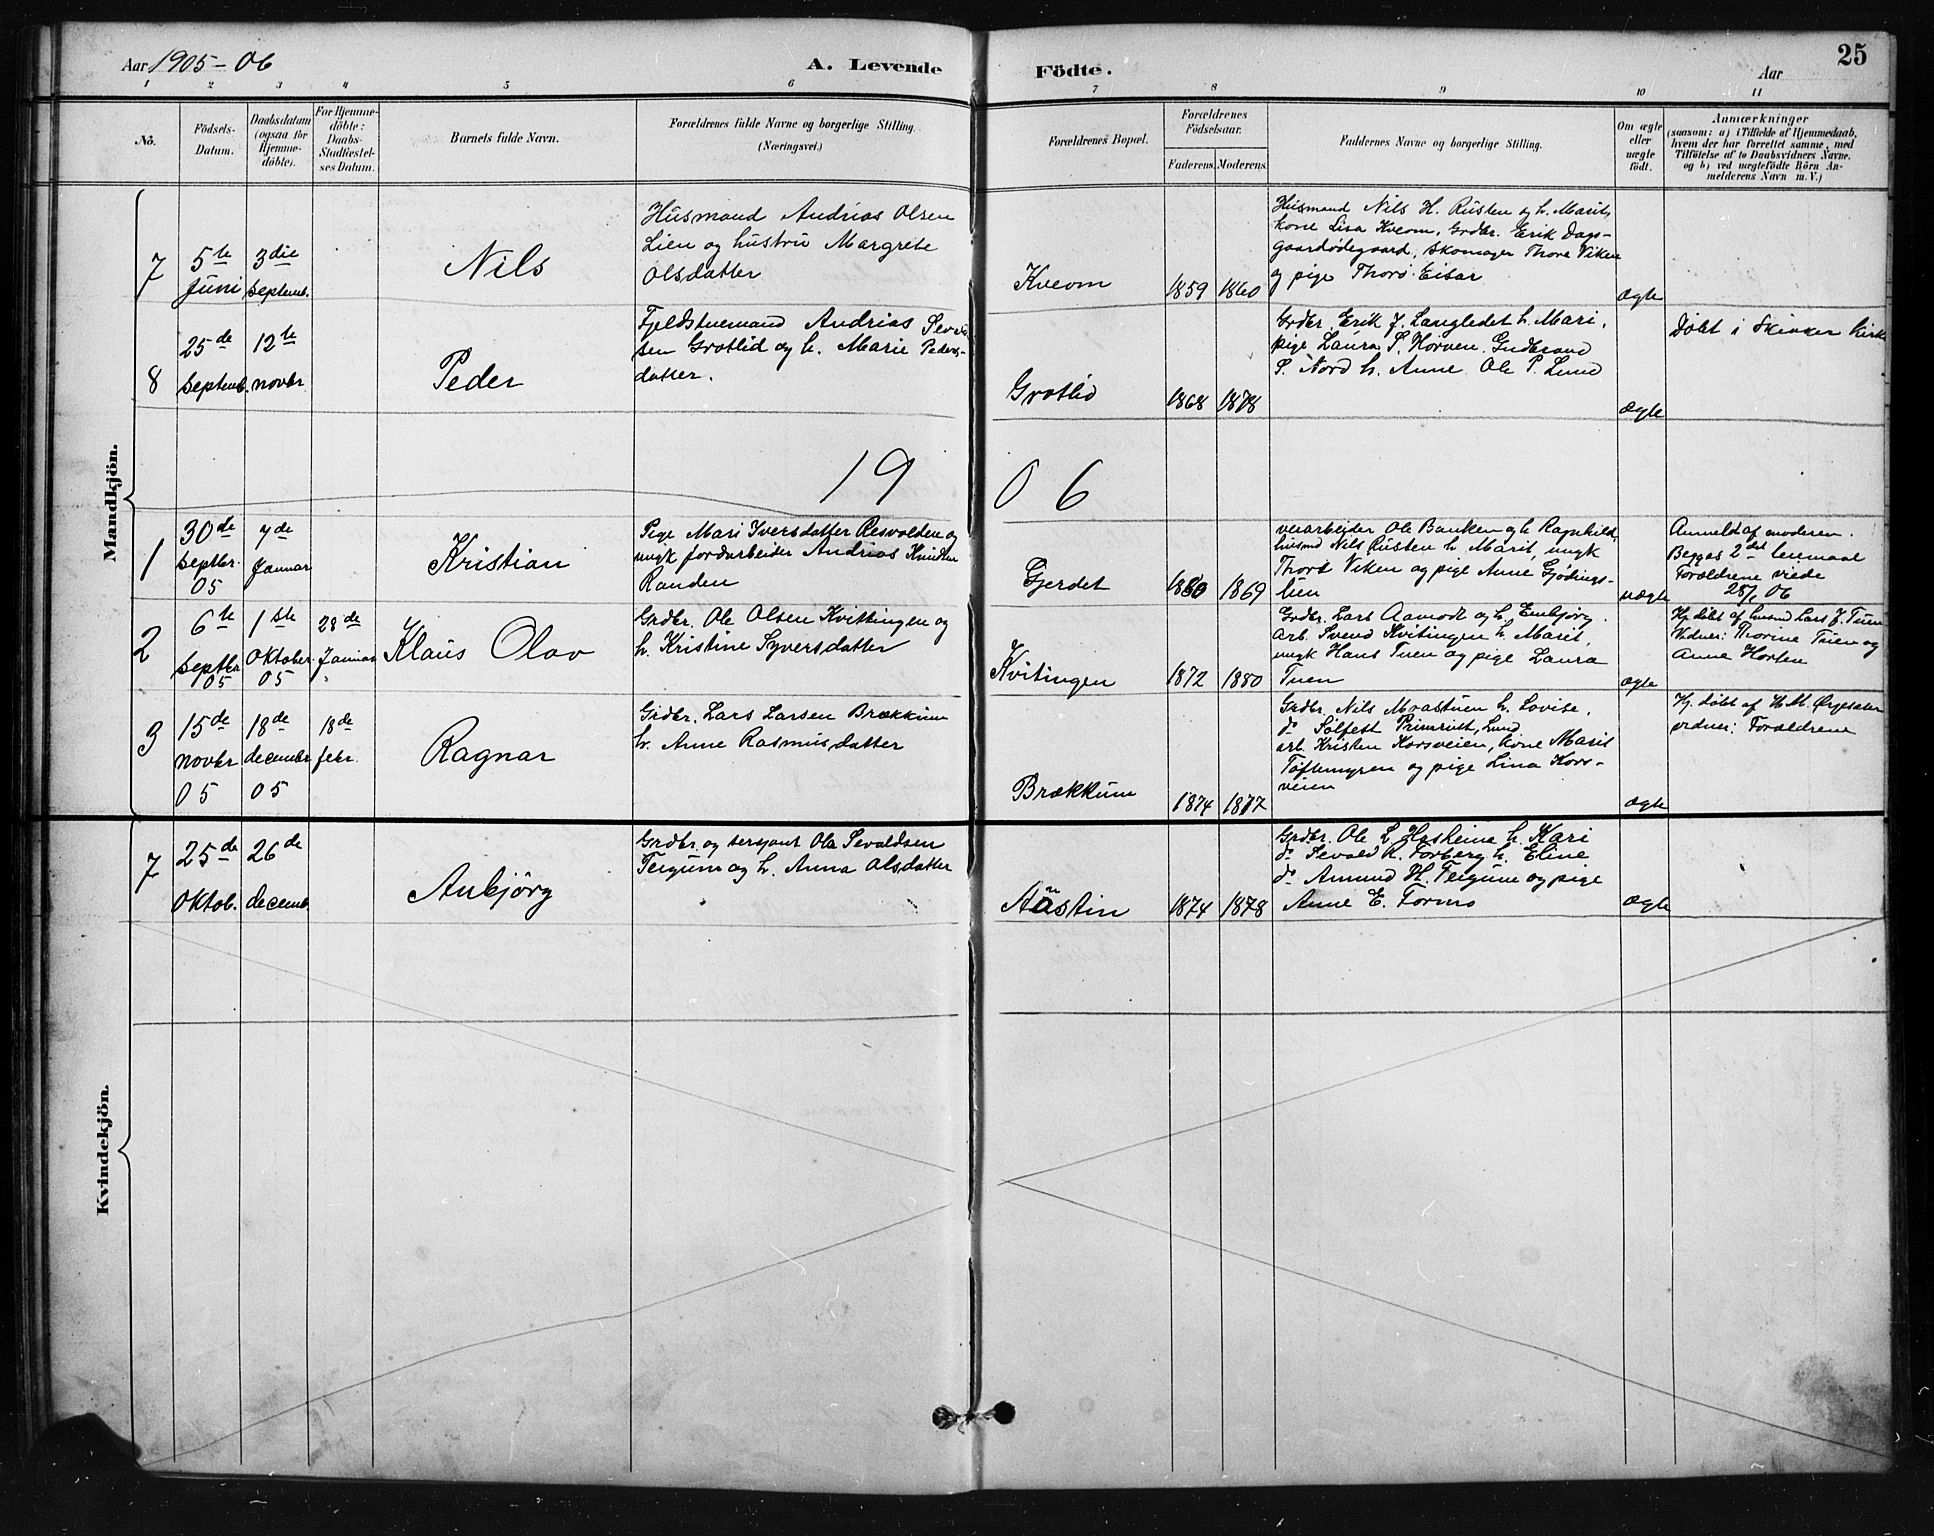 Aar 1905-06
A. Levende Födte.
Aar
25
1 2 3 4 5 6 7 8 9 10 11
No.
Födsels-
Datum.
Daabsdatum
(ogsaa for
Hjemme-
döbte).
For Hjemme-
döbte:
Daabs-
Stadfæstel-
ses Datum.
Barnets fulde Navn.
Forældrenes fulde Navne og borgerlige Stilling.
(Næringsvei.)
Forældrenes Bopæl.
Forældrenes
Födselsaar.
Faderens. Moderens.
Faddernes Navne og borgerlige Stilling.
Om ægte
eller
uægte
födt.
Anmærkninger
(saasom: a) i Tilfælde af Hjemmedaab,
hvem der har forrettet samme, med
Tilföielse af to Daabsvidners Navne,
og b) ved uægtefödte Börn An-
melderens Navn m. V.)
Mandkjön.
7
5te
Juni
3die
Septemb.
Nils
Husmand Andrias Olsen
Lien og hustru Margrete
Olsdatter
Kveom
1859 1860
Husmand Nils H. Rusten og h. Marit,
kone Lisa Kveom, Grdbr. Erik Dags-
gaardødegaard, Skomager Thore Viken
og pige Thorø Eisar
ægte
8
25de
Septemb.
12te
novbr
Peder
Fjeldstuemand Andrias
sen Grotlid og h. Marie Peders-
datter.
Grotlid
1868 1878
Grdbr. Erik J. Langledet h. Mari,
pige Laura S. Horven. Gudbrand
S. Nord h. Anne. Ole P. Lund
ægte
Döbt i Skiaker Kirke
1906
1
30de
Septbr.
05
7de
Januar
Kristian
Pige Mari Iversdatter Resvolden og
ungk jordarbeider Andrias Knudsen
Randen
Gjerdet
1880 1869
veiarbeider Ole Banken og h. Ragnhild,
husmd Nils Rusten h. Marit, ungk
Thord Viken og pige Anne Gjødings-
lien
uægte
Anmeldt af moderen.
Begges 2det leiermaal
Forældrene viede
28/1 06
2
6te
Septbr
05
1ste
Oktober
05
28de
Januar
Klaus Olav
Grdbr. Ole Olsen Kvittingen og
h. Kristine Syversdatter
Kvitingen
1872 1880
Grdbr. Lars Aamodt og h. Embjørg.
Arb. Svend Kvitingen h. Marit,
ungk Hans Tuen og pige Laura
Tuen
ægte
Hj. döbt af husmd Lars J. Tuen
Vidner: Thorine Tuen og
Anne Horten
3
15de
novbr
05
18de
decembr
05
18de
febr.
Ragnar
Grdbr. Lars Larsen Brækkum
h. Anne Rasmusdatter
Brækkum
1874 1877
Grdbr. Nils Moastuen h. Lovise.
do Sølfest Lund
arb. Kristen Korsveien, kone Marit
Toftemyren og pige Lina Kors-
veien
ægte
Hj. döbt af H. M.
vidner: Forældrene
Kvindekjön.
7
25de
Oktob.
26de
decemb.
Anbjörg
Grdbr. og sersjant Ole Sevaldsen
Teigum og h. Anna Olsdatter
Aastin
1874 1878
Grdbr. Ole L. h. Kari
do Sevald R. Forberg h. Eline
do Amund H. Teigum og pige
Anne E. Formo
ægte